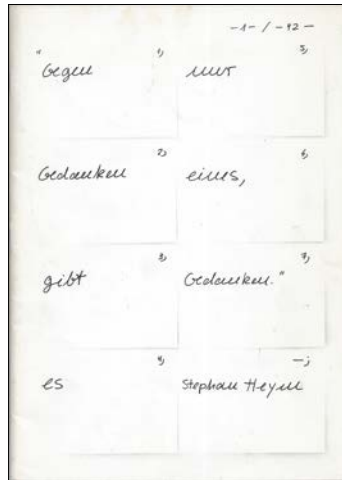 -1- / -12-
1)
"Gegen
2)
Gedanken
3)
gibt
4)
es
5)
nur
6)
eines,
7)
Gedanken."
-)
Stephan Heym